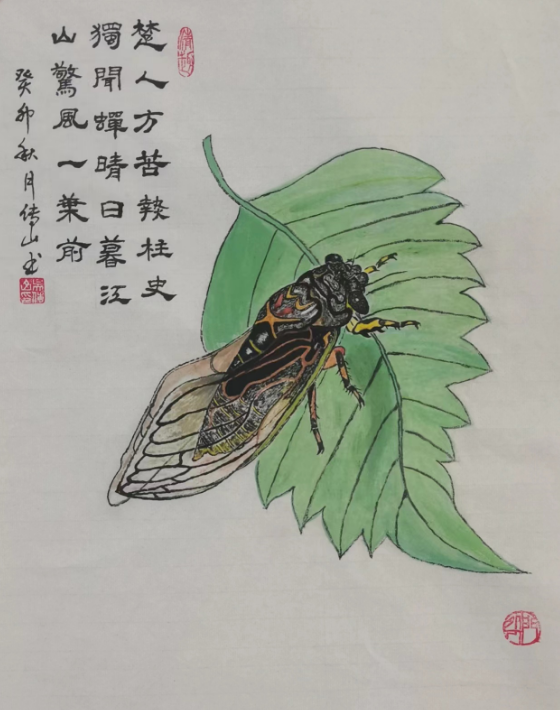 楚人方苦熱柱史
獨聞蟬晴日暮江
山驚風一葉前
癸卯秋月传山书